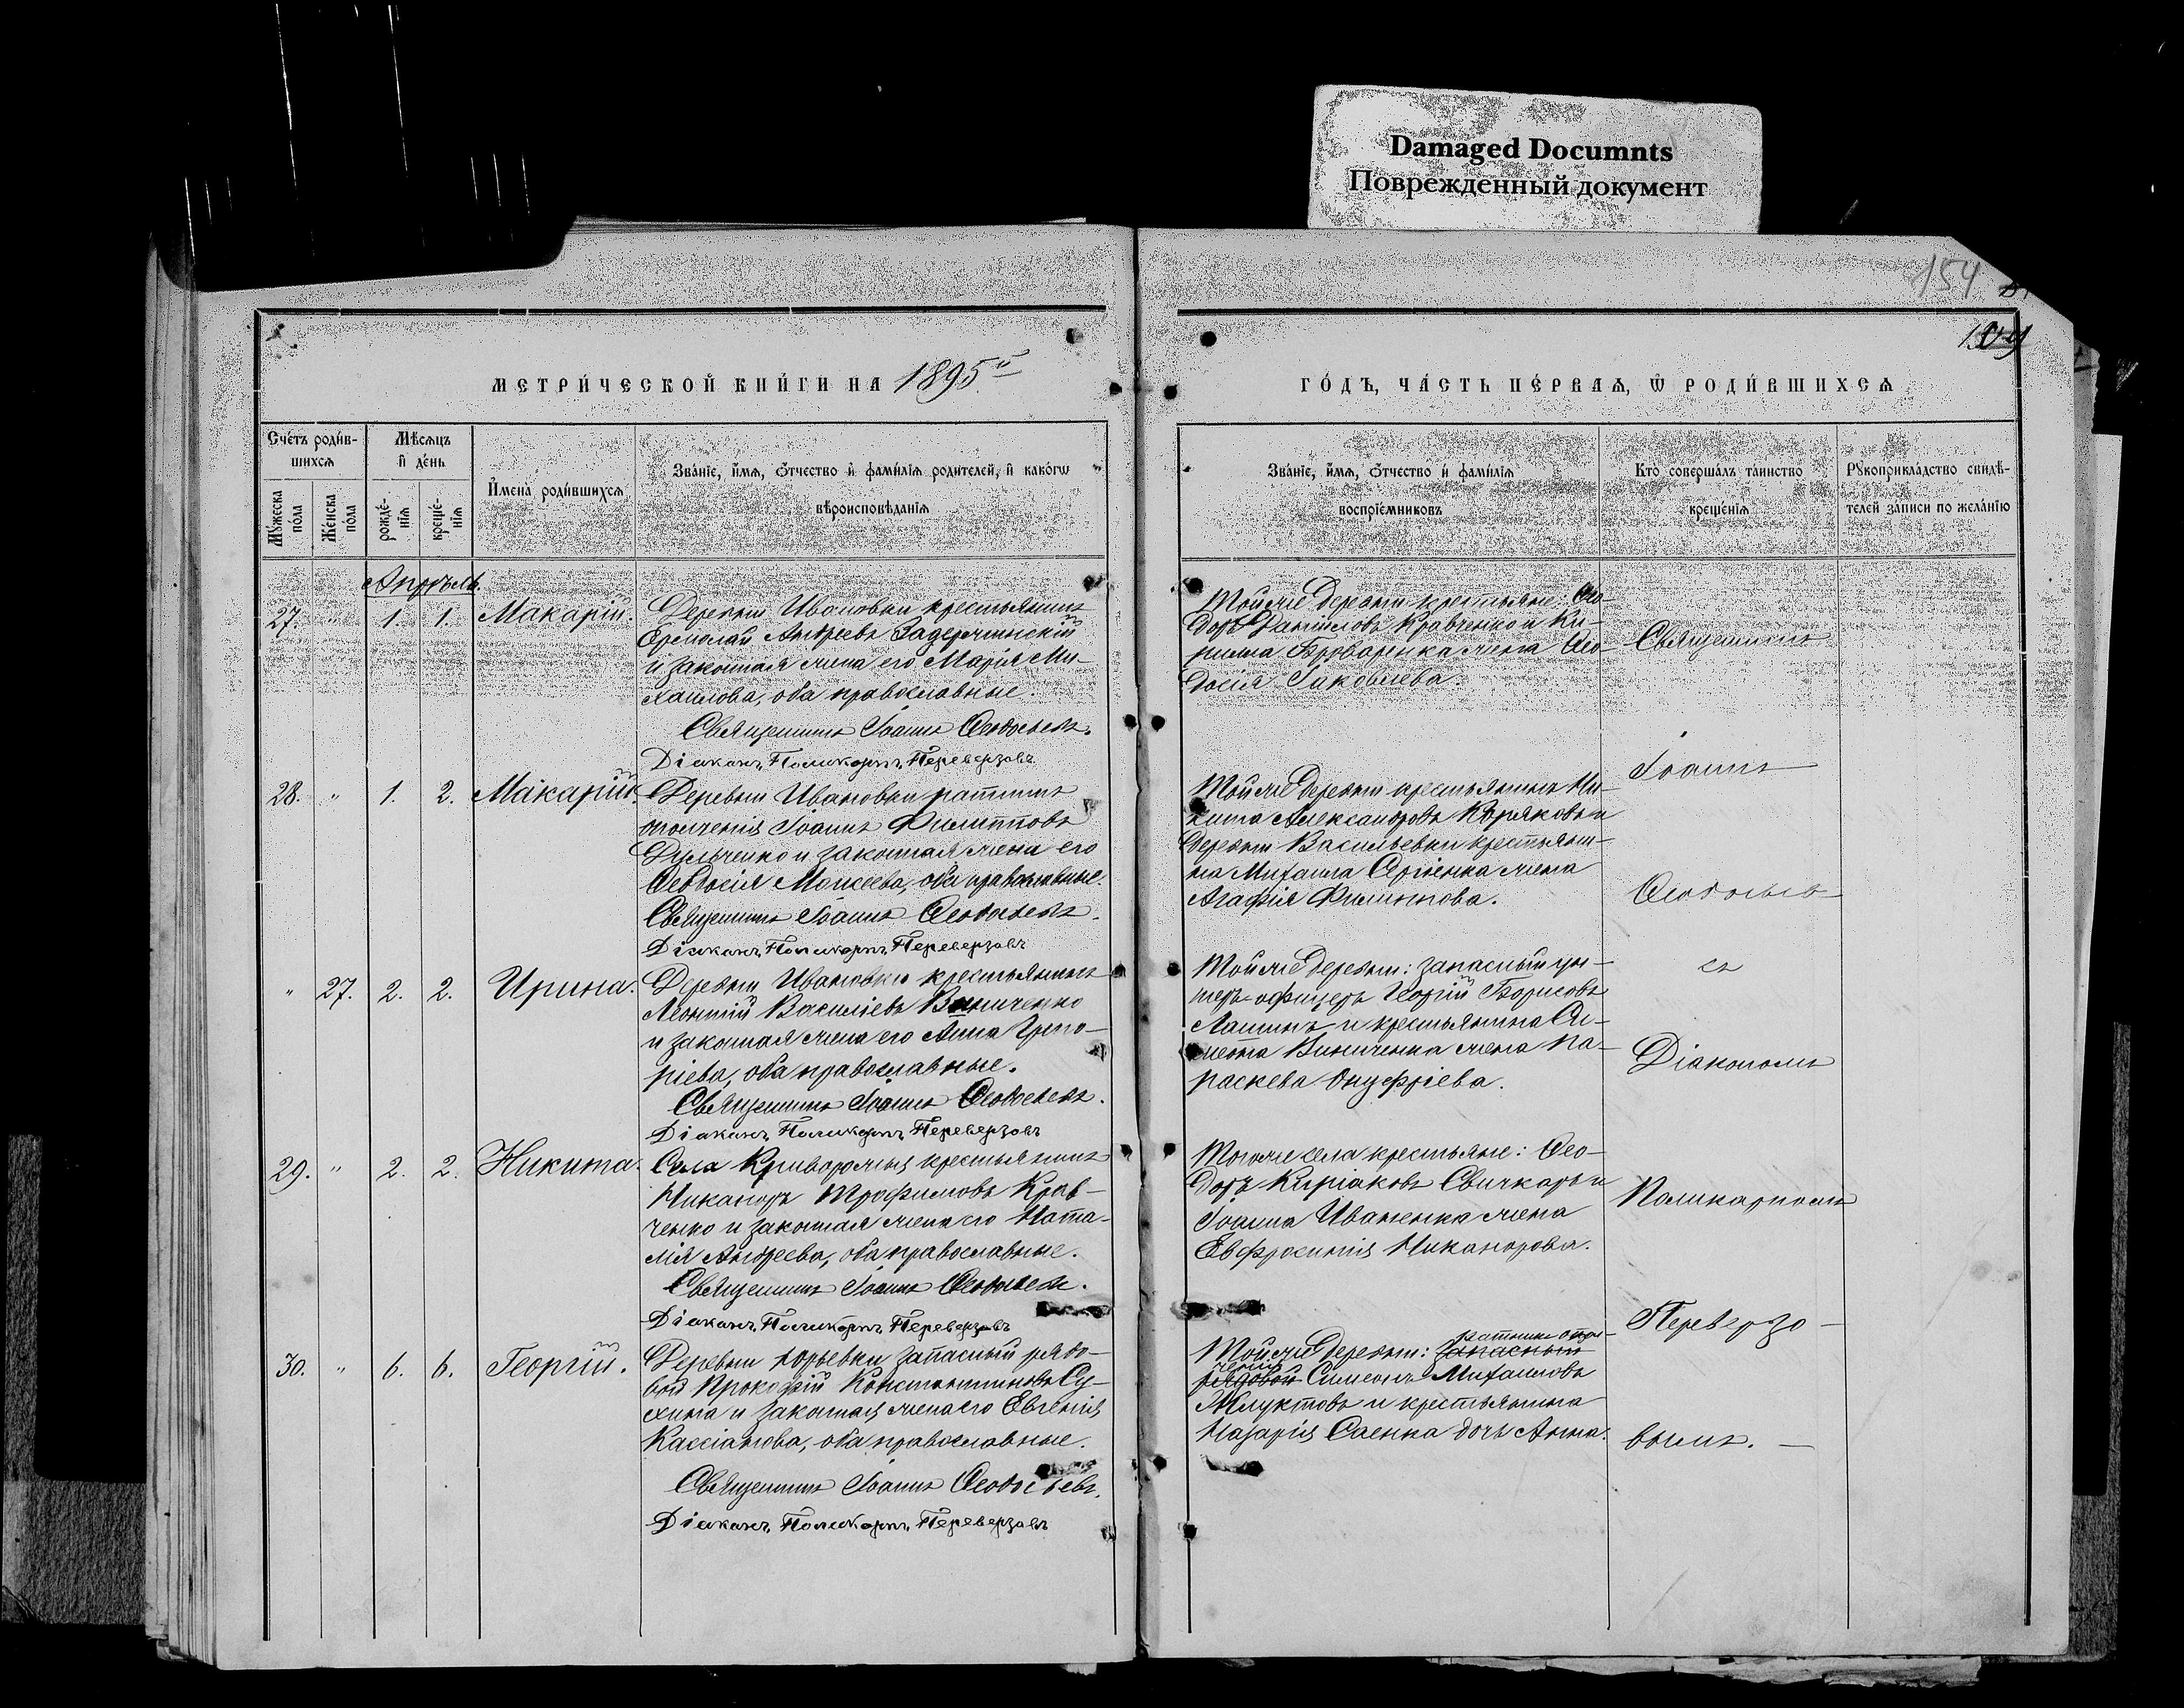 Damaged Documnts
Поврежденный документ
154
109
МЕТРИ́ЧЕСКОЙ КНИ́ГИ НА 1895й
ГО́ДЪ, ЧА́СТЬ ПЕ́РВАѦ, Ѡ҆ РОДИ́ВШИХСѦ
Сче́тъ роди́в-
шихсѧ
Мꙋ́жеска
по́ла
Же́нска
по́ла
Мѣ́сѧцъ
и҆ де́нь
рожде́-
нїѧ
креще́-
нїѧ
И҆мена̀ роди́вшихсѧ
Зва́нїе, и҆́мѧ, ѻ҆́тчество и҆ фами́лїѧ роди́телей, и҆ како́гѡ
вѣроисповѣ́данїѧ
Зва́нїе, и҆́мѧ, ѻ҆́тчество и҆ фами́лїѧ
воспрїе́мниковъ
Кто̀ соверша́лъ та́инство
креще́нїѧ
Рꙋкоприкла́дство свидѣ́-
телей за́писи по жела́нїю
Апрѣль.
27. " 1. 1. Макарій.
Деревни Ивановки крестьянинъ
Ермолай Андреевъ Задержинскій
и законная жена его Марія Ми-
хаилова, оба православные.
Священникъ Іоаннъ Ѳеодосьевъ.
Діаконъ Поликарпъ Переверзовъ
Той же деревни крестьяне: Ѳео-
доръ Даниловъ Кравченко и Ки-
рилла Броваренка жена Ѳео-
досія Іаковлева.
28. " 1. 2. Макарій.
Деревни Ивановки ратникъ
ополченія Іоаннъ Филипповъ
Дульченко и законная жена его
Ѳеодосія Моисеева, оба православные.
Священникъ Іоаннъ Ѳеодосьевъ.
Діаконъ Поликарпъ Переверзовъ
Той же деревни крестьянинъ Ни-
кита Александровъ Коряковъ и
деревни Васильевки крестьяни-
на Михаила жена
Агафія Филиппова.
" 27. 2. 2. Ирина.
Деревни Ивановки крестьянинъ
Леонтій Василіевъ Виниченко
и законная жена его Анна Григо-
ріева, оба православные.
Священникъ Іоаннъ Ѳеодосьевъ.
Діаконъ Поликарпъ Переверзовъ
Той же деревни: запасный ун-
теръ-офицеръ Георгій Борисовъ
Лашинъ и крестьянина
Виниченка жена Па-
раскева Онуфріева.
29. " 2. 2. Никита.
Села Криворожья крестьянинъ
Никаноръ Трофимовъ Крав-
ченко и законная жена его Ната-
лія Андреева, оба православные.
Священникъ Іоаннъ Ѳеодосьевъ.
Діаконъ Поликарпъ Переверзовъ
Того же села крестьяне: Ѳео-
доръ Киріаковъ Свичкарь и
Іоанна Иваненка жена
Евфросинія Никанорова.
30. " 6. 6. Георгій.
Деревни Юрьевки запасный рядо-
вой Прокофій Константиновъ Су-
хина и законная жена его Евгенія
Кассіанова, оба православные.
Священникъ Іоаннъ Ѳеодосьевъ.
Діаконъ Поликарпъ Переверзовъ
ратникъ
Той же деревни: запасный
рядовой Симеонъ Михаиловъ
и крестьянина
Назарія Саенка дочь Анна.
Священникъ
Іоаннъ
Ѳеодосьевъ
съ
Діакономъ
Поликарпомъ
Переверзо-
вымъ.